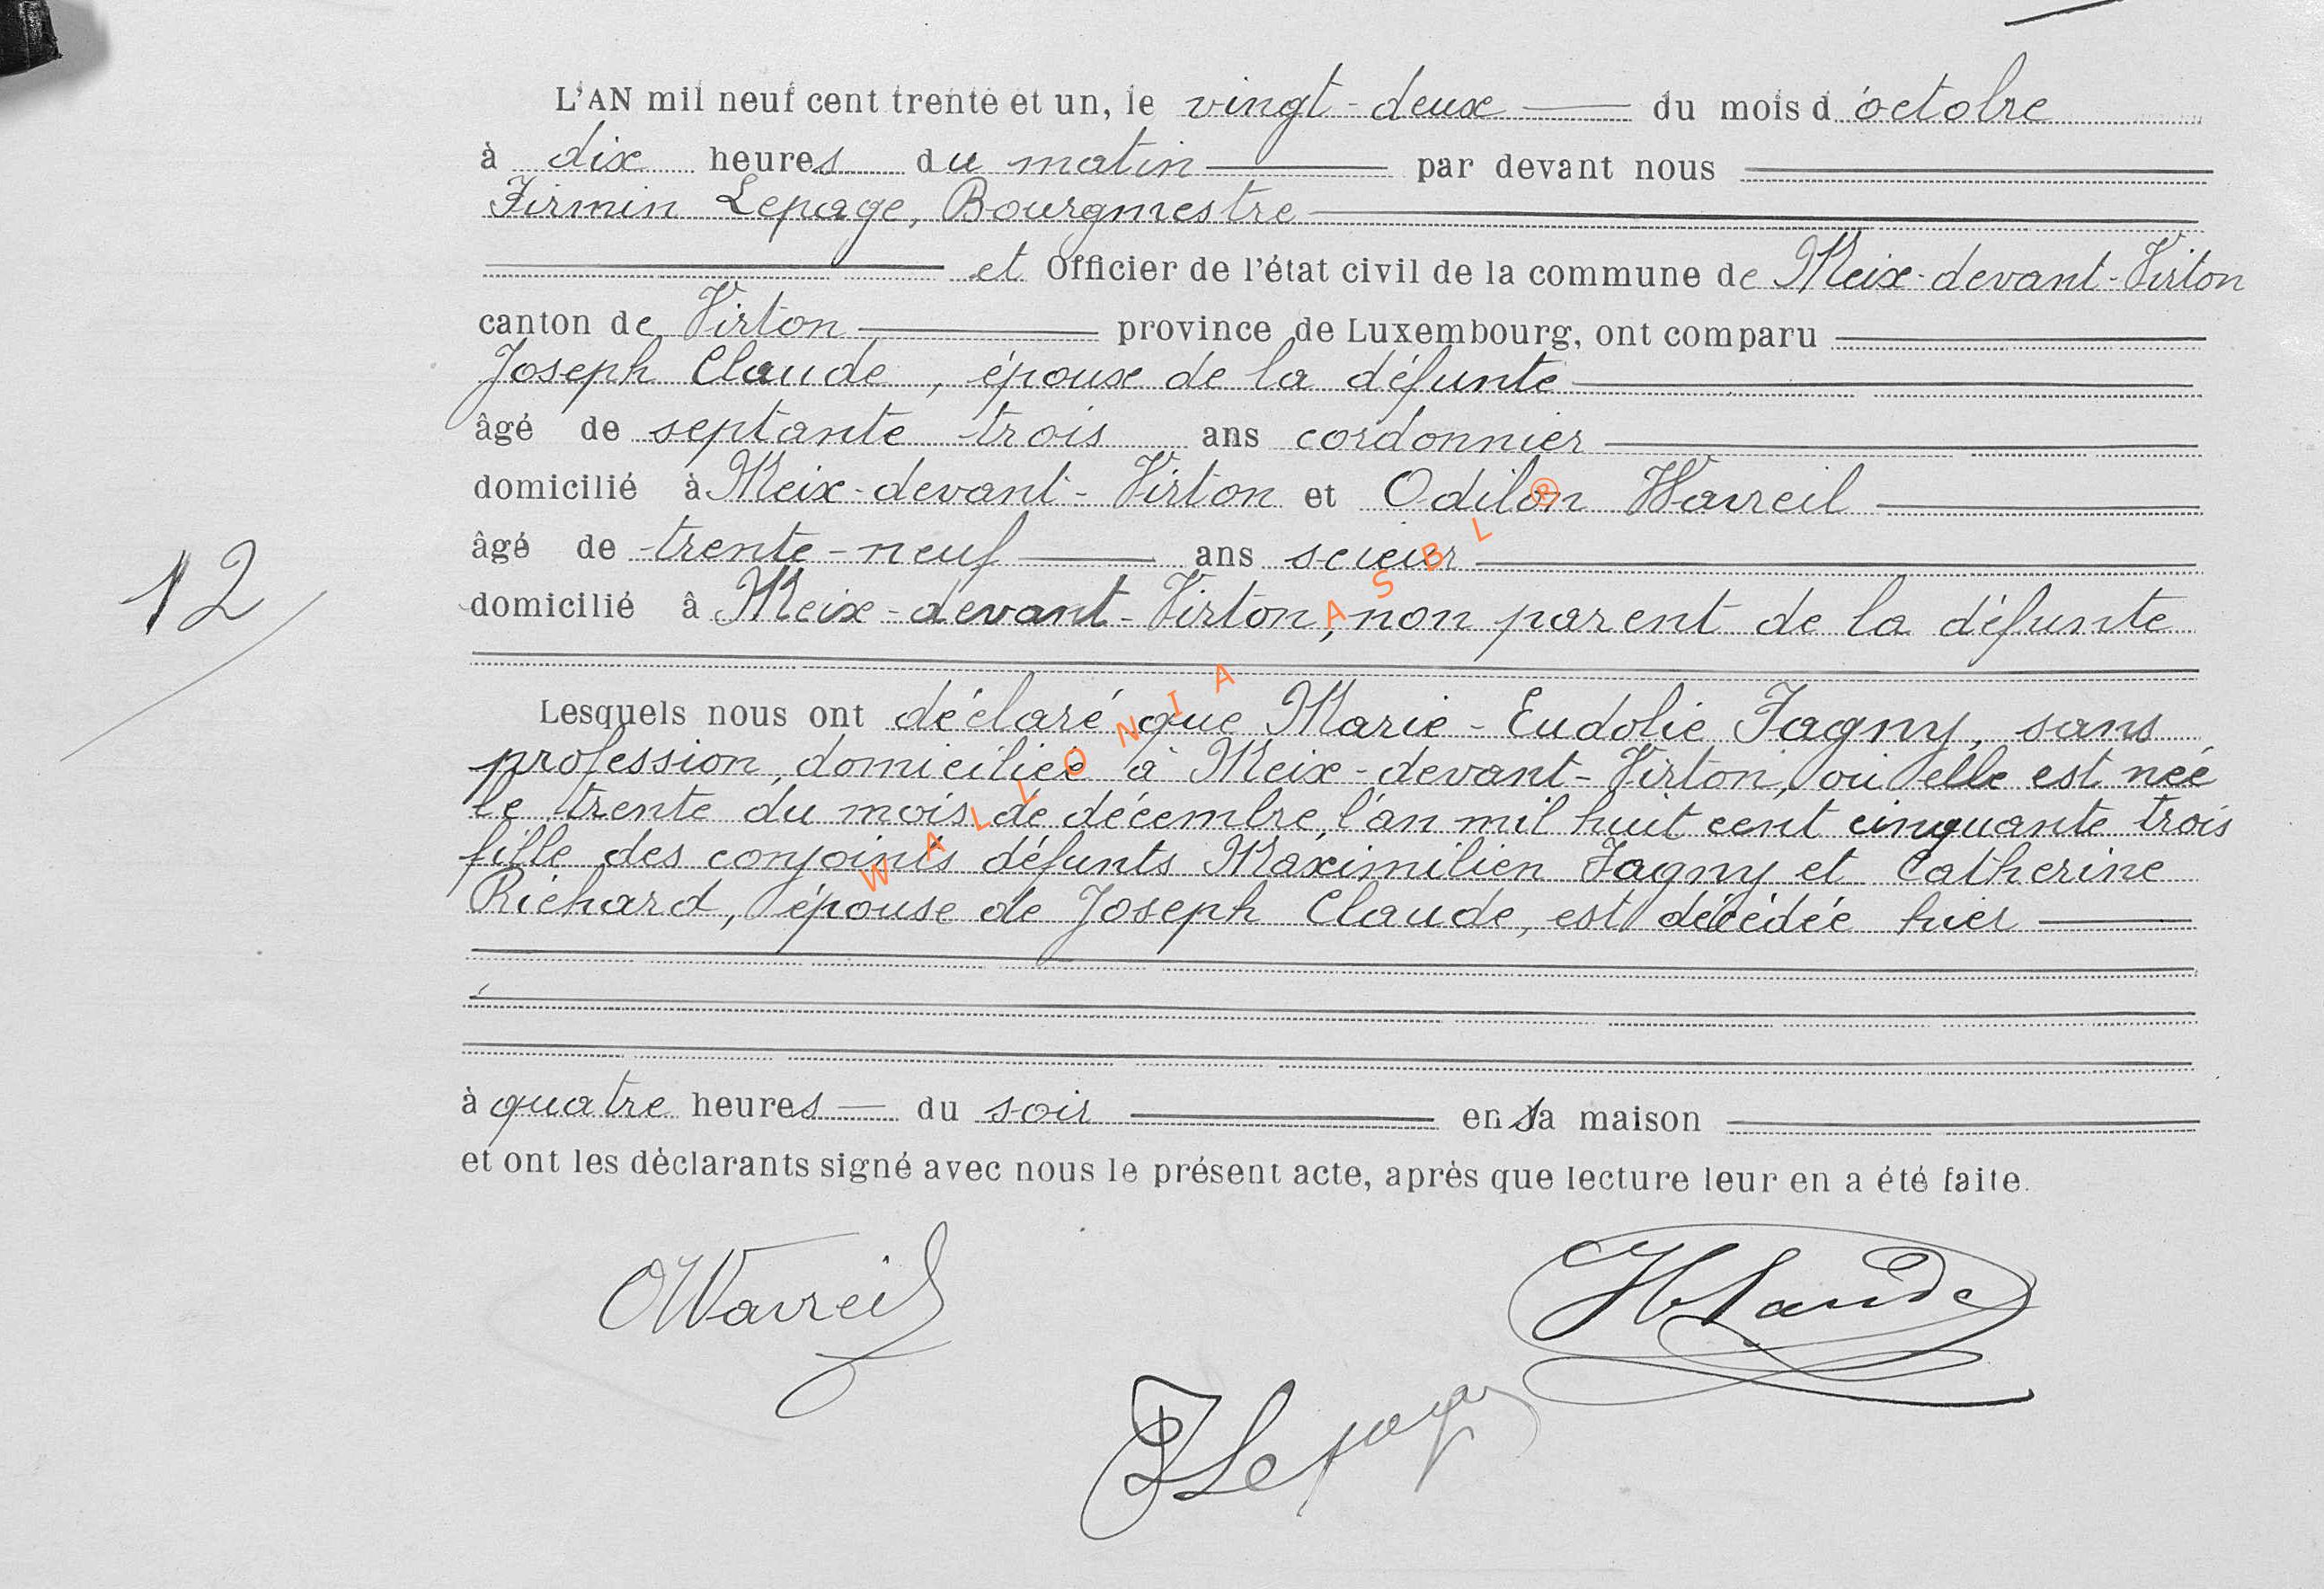 L'AN mil neuf cent trente et un, le vingt-deux du mois d'octobre
à dix heures du matin par devant nous
Firmin Lepage, Bourgmestre
et Officier de l'état civil de la commune de Meix-devant-Virton
canton de Virton province de Luxembourg, ont comparu
Joseph Claude, époux de la défunte
âgé de septante trois ans cordonnier
domicilié à Meix-devant-Virton et Odilon Wavreil
âgé de trente-neuf ans scieur
domicilié à Meix-devant-Virton, non parent de la défunte
12
Lesquels nous ont déclaré que Marie-Eudolie Fagny, sans
profession, domiciliée à Meix-devant-Virton, où elle est née
le trente du mois de décembre, l'an mil huit cent cinquante trois
fille des conjoints défunts Maximilien Fagny et Catherine
Richard, épouse de Joseph Claude, est décédée hier
à quatre heures du soir en sa maison
et ont les déclarants signé avec nous le présent acte, après que lecture leur en a été faite.
OWavreil
Claude
F Lepage
WALLONIA ASBL ®